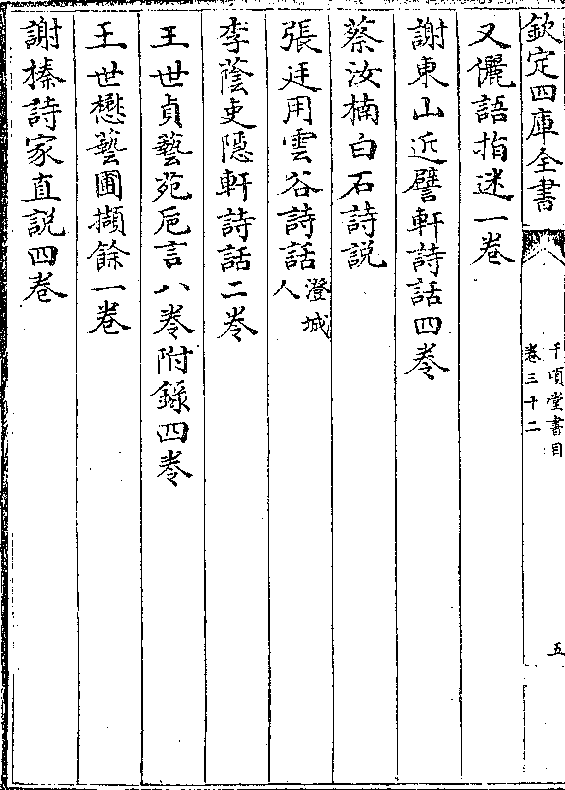 欽定四庫全書
千頃堂書目
卷三十二
五
又儷語指迷一卷
謝東山近譬軒詩話四卷
蔡汝楠白石詩説
張廷用雲谷詩話澄城人
李蔭吏隱軒詩話二卷
王世貞藝苑巵言八卷附錄四卷
王世懋藝圃擷餘一卷
謝榛詩家直説四卷